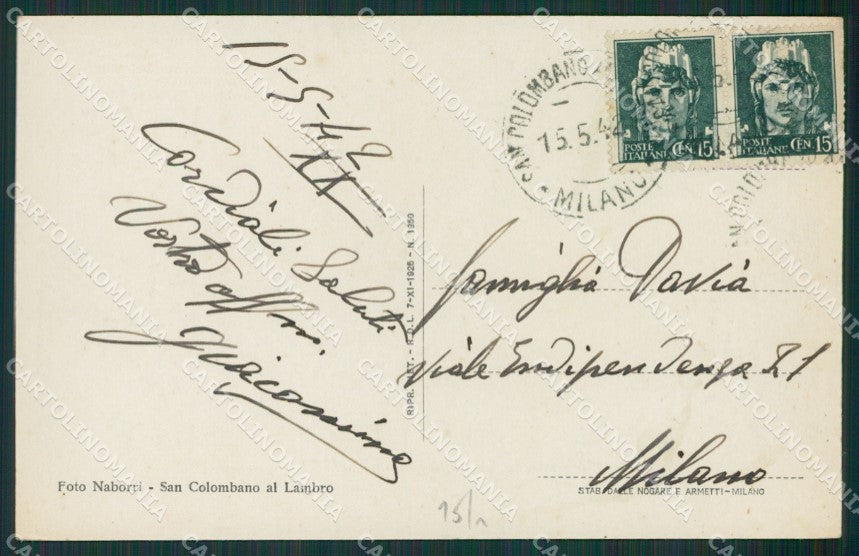 15-5-42
XX
Cordiali Saluti
Vostro affmo
Giacomino
Foto Naborri - San Colombano al Lambro
RIPR. INT. - R. D. L. 7-XI-1925 - N. 1950
SAN COLOMBANO
15.5.42
MILANO
POSTE ITALIANE CEN 15
POSTE ITALIANE CEN 15
Famiglia Pavia
Viale Indipendenza 21
Milano
STAB. DALLE NOGARE E ARMETTI-MILANO
CARTOLINOMANIA